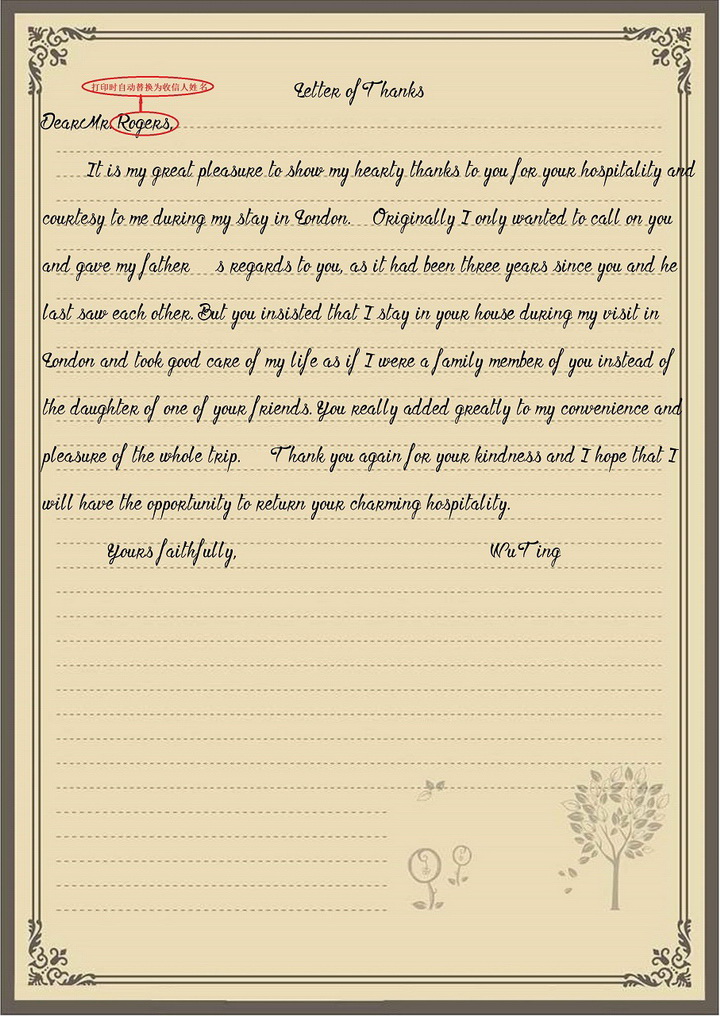 Letter of Thanks
打印时自动替换为收信人姓名
Dear Mr. Rogers,
It is my great pleasure to show my hearty thanks to you for your hospitality and
courtesy to me during my stay in London. Originally I only wanted to call on you
and gave my father s regards to you, as it had been three years since you and he
last saw each other. But you insisted that I stay in your house during my visit in
London and took good care of my life as if I were a family member of you instead of
the daughter of one of your friends. You really added greatly to my convenience and
pleasure of the whole trip. Thank you again for your kindness and I hope that I
will have the opportunity to return your charming hospitality.
Yours faithfully, Wu Ting